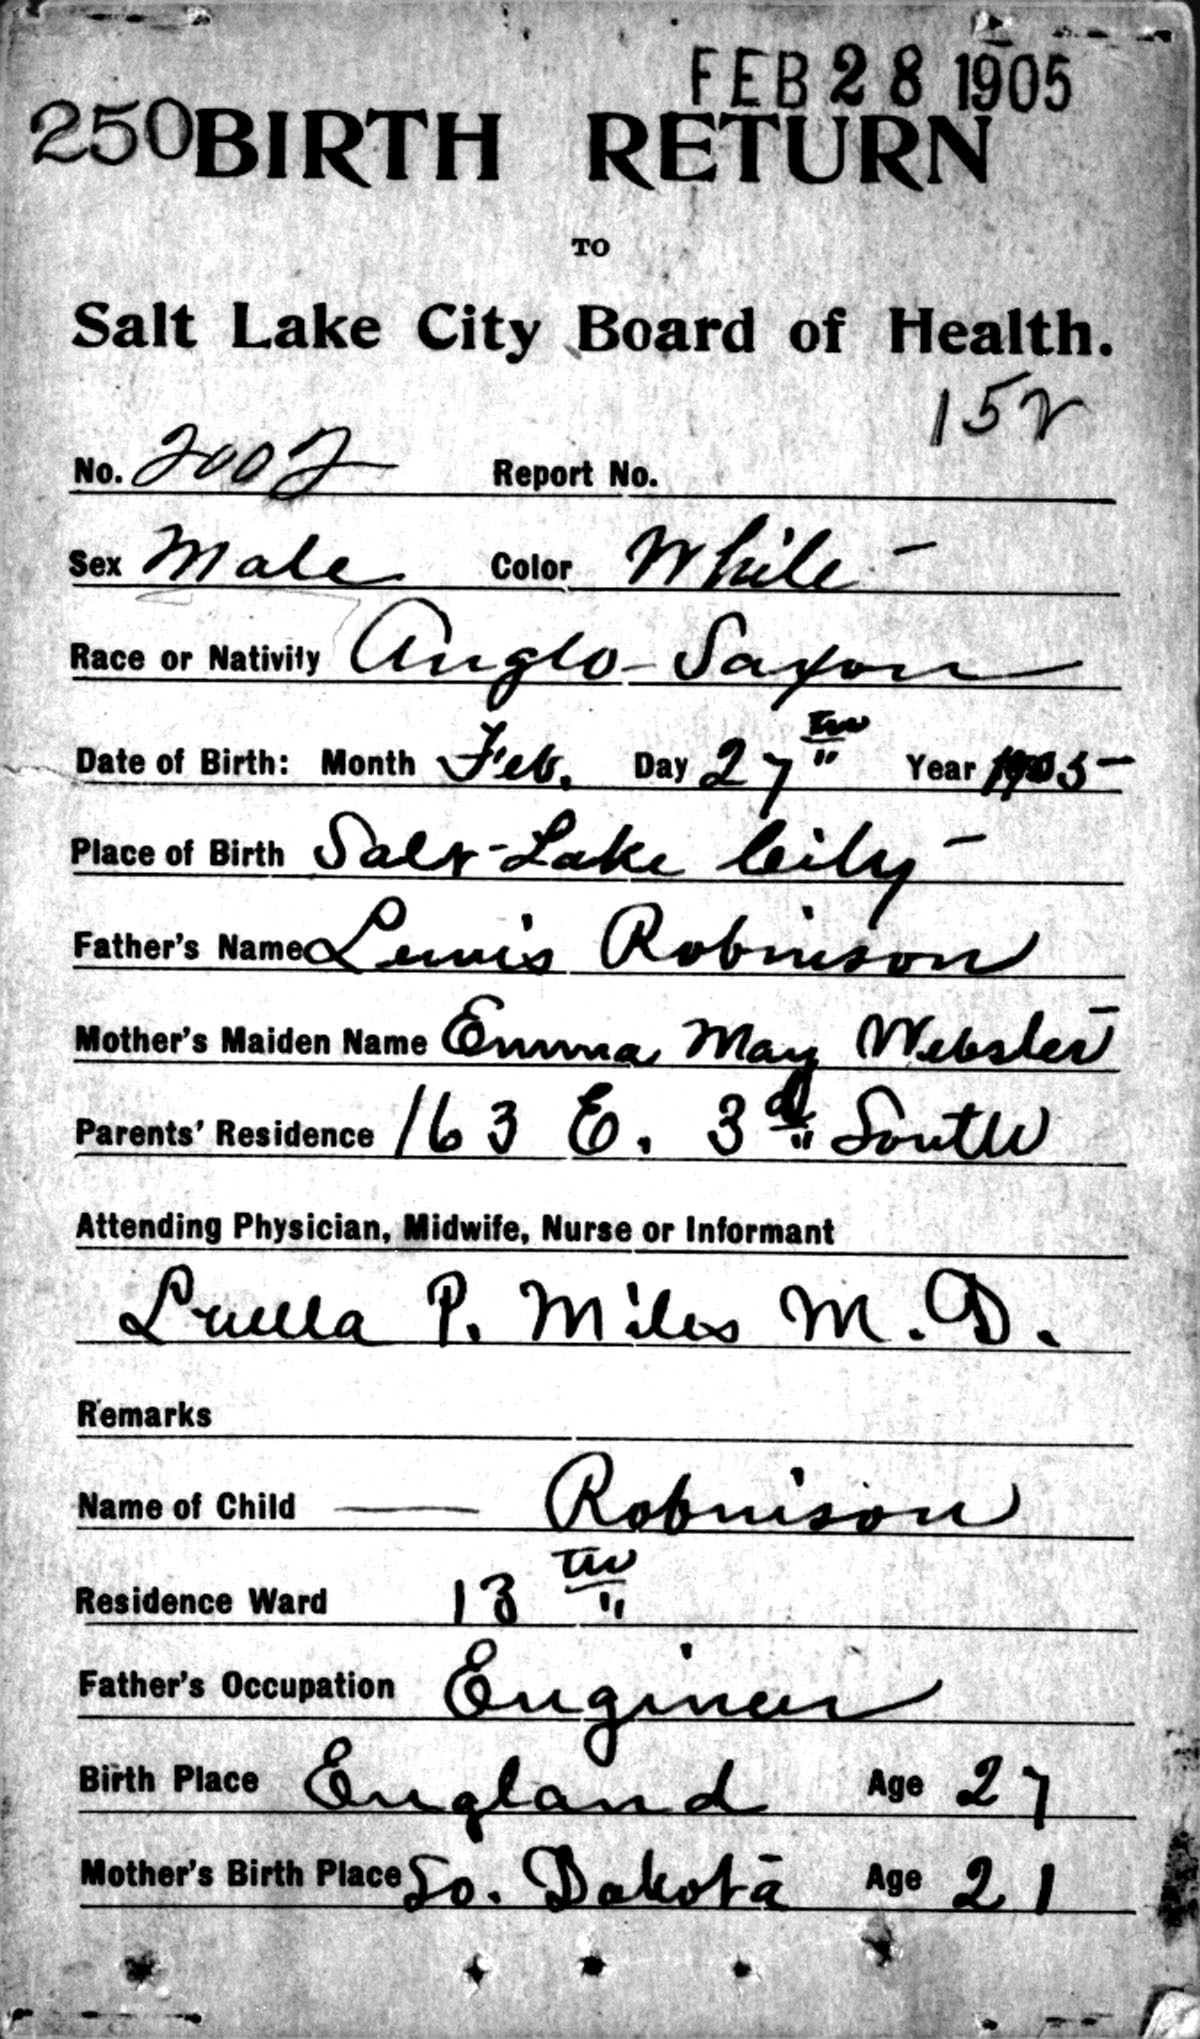 FEB 28 1905
250 BIRTH RETURN
TO
Salt Lake City Board of Health.
152
No. 2002 Report No.
Sex Male Color White -
Race or Nativity Anglo-Saxon
Date of Birth: Month Feb. Day 27th Year 1905 -
Place of Birth Salt-Lake City -
Father's Name Lewis Robinson
Mother's Maiden Name Emma May Webster
Parents' Residence 163 E. 3d South
Attending Physician, Midwife, Nurse or Informant
Luella P. Miles M.D.
Remarks
Name of Child — Robinson
Residence Ward 13th
Father's Occupation Engineer
Birth Place England Age 27
Mother's Birth Place So. Dakota Age 21